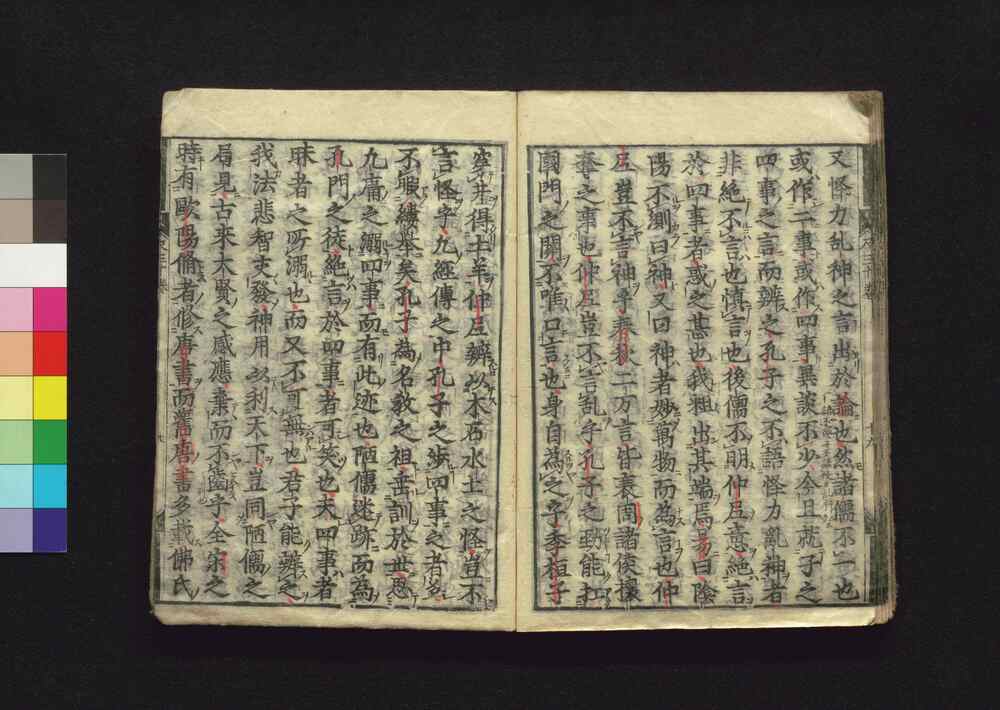 又怪力乱神之言出於論也然諸儒不一也
或作二事或作四事異談不少今且就子之
四事之言而辨之孔子之不語怪力亂神者
非絶不言也慎言也後儒不明仲尼意絶言
於四事者惑之甚也我粗出其端焉易曰陰
陽不測曰神又曰神者妙萬物而為言也仲
尼豈不言神乎春秋二万言皆衰周諸侯攘
奪之事也仲尼豈不言乱乎孔子之勁能扛
國門之関不唯口言也身自為之乎季桓子
穿井得土羊仲尼辨以木石水土之怪豈不
言怪乎九經傳之中孔子之渉四事之者多
不暇縷挙矣孔子為名教之祖垂訓於世恐
九庸之溺四事而有此迹也陋儒迷跡而為
孔門之徒絶言於四事者可笑也夫四事者
昧者之所溺也而又不可無也君子能辨之
我法悲智支發神用以利天下豈同陋儒之
見古来大賢之感應棄而不齒乎全宋之
時有歐陽脩者修唐書而舊唐書多載佛氏